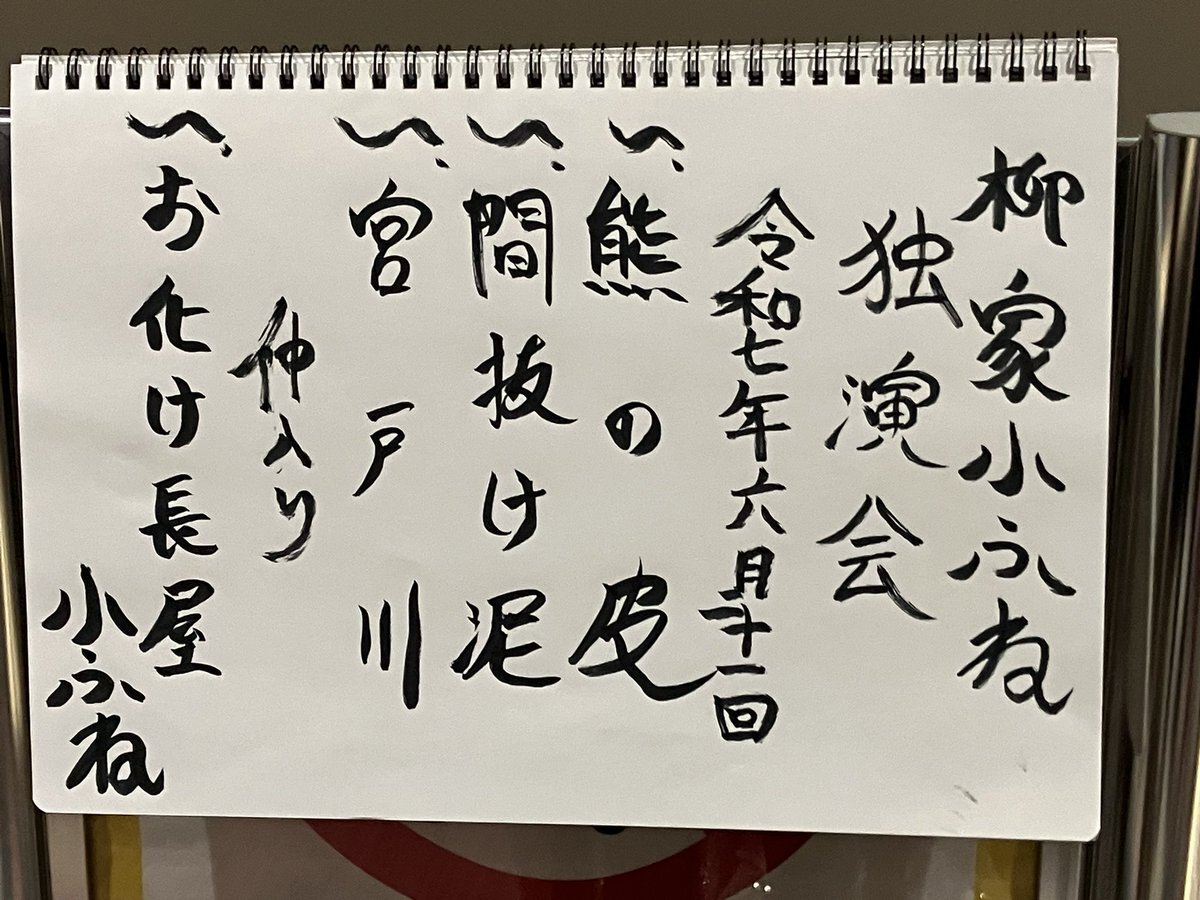 柳家小ふね
独演会
令和七年六月二十一回
一、熊の皮
一、間抜け泥
一、宮戸川
仲入り
一、お化け長屋
小ふね